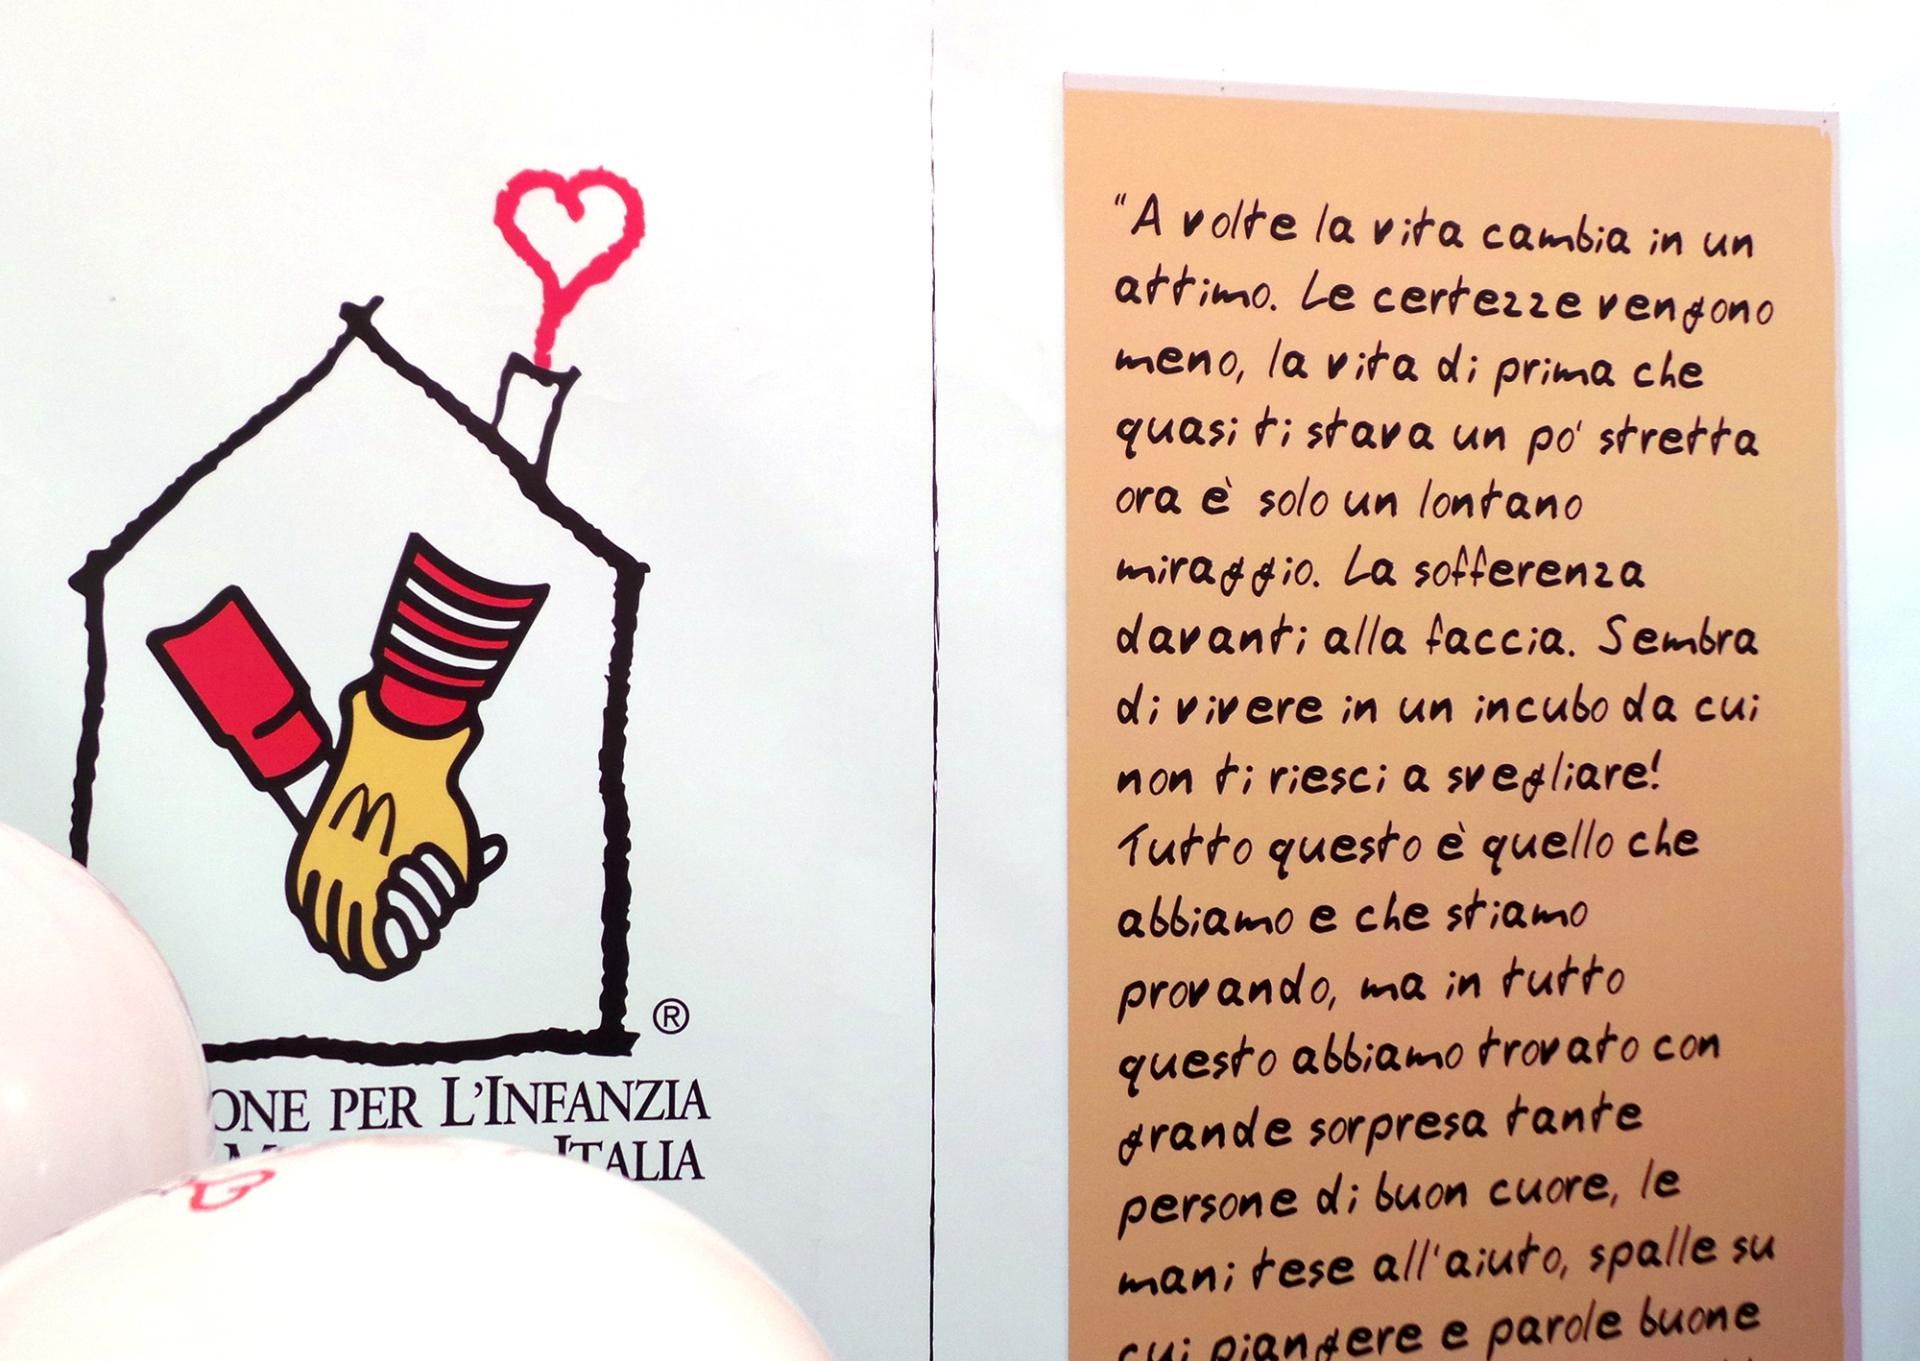 ®
ONE PER L'INFANZIA
ITALIA
"A volte la vita cambia in un
attimo. Le certezze vengono
meno, la vita di prima che
quasi ti stava un po' stretta
ora è solo un lontano
miraggio. La sofferenza
davanti alla faccia. Sembra
di vivere in un incubo da cui
non ti riesci a svegliare!
Tutto questo è quello che
abbiamo e che stiamo
provando, ma in tutto
questo abbiamo trovato con
grande sorpresa tante
persone di buon cuore, le
mani tese all'aiuto, spalle su
cui piangere e parole buone